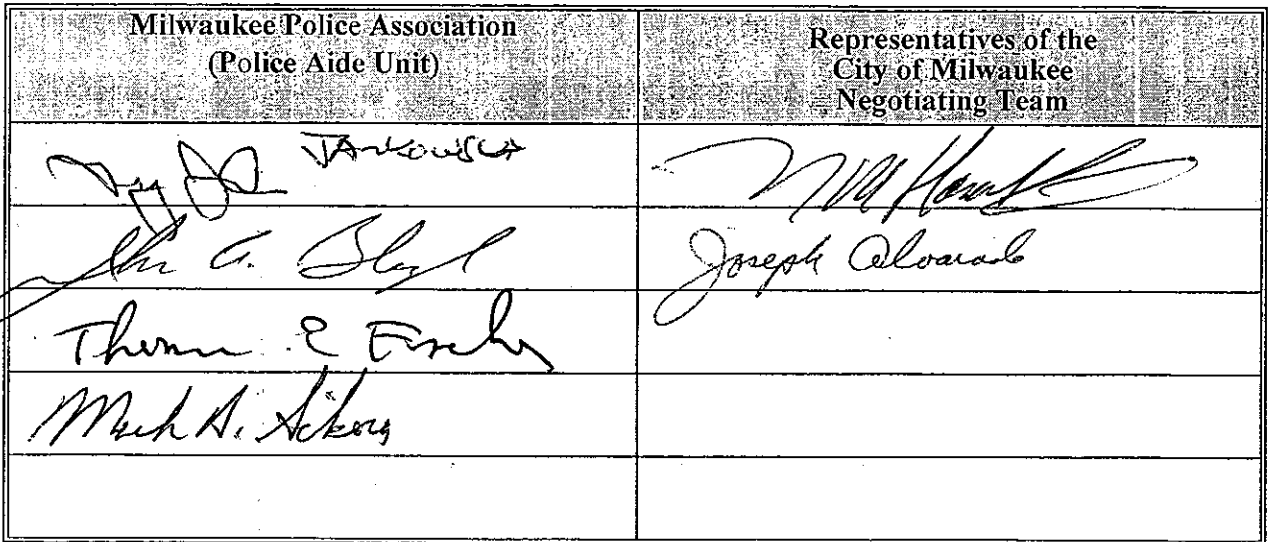 Milwaukee Police Association
(Police Aide Unit)
Representatives of the
City of Milwaukee
Negotiating Team
JANKOWSKI
Joseph Alvarado
Thomas E Fischer
Mark A. Sikora